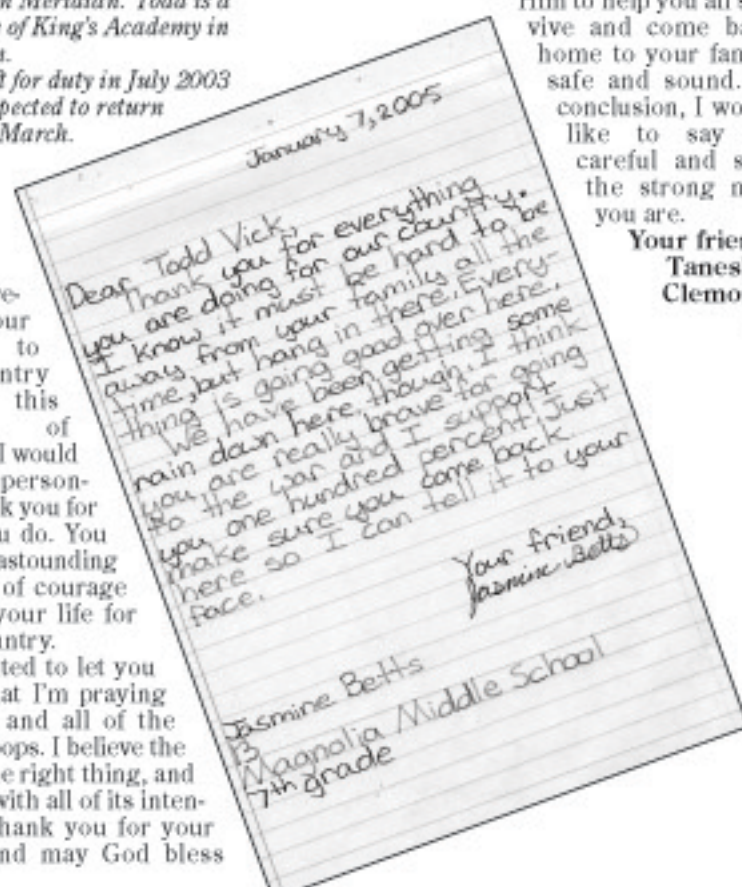 n Meridian. Todd is a
of King's Academy in
n.
t for duty in July 2003
pected to return
March.
e-
our
to
ntry
this
of
I would
person-
k you for
u do. You
astounding
of courage
your life for
untry.
ted to let you
at I'm praying
and all of the
oops. I believe the
e right thing, and
with all of its inten-
hank you for your
nd may God bless
January 7, 2005
Dear Todd Vick,
Thank you for everything
you are doing for our country.
I know it must be hard to be
away from your family all the
time, but hang in there. Every-
thing is going good over here.
We have been getting some
rain down here though. I think
you are really brave for going
to the war and I support
you one hundred percent! Just
make sure you come back
here so I can tell it to your
face.
Your friend,
Jasmine Betts
Jasmine Betts
13
Magnolia Middle School
7th grade
Him to help you all s
vive and come ba
home to your fam
safe and sound.
conclusion, I wo
like to say
careful and s
the strong m
you are.
Your frien
Tanes
Clemo